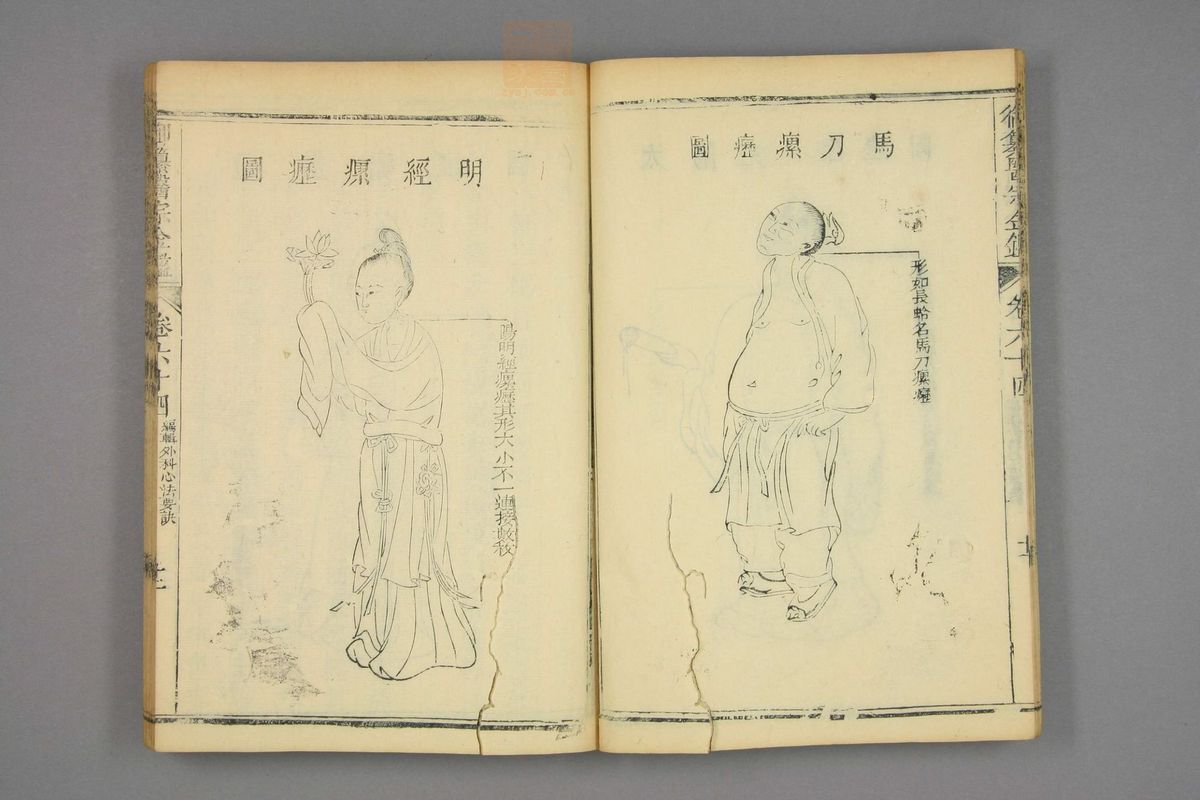 御纂醫宗金鑑
卷六十四
馬刀瘰癧圖
形如長蛤名馬刀瘰癧
明經瘰癧圖
陽明經瘰癧其形大小不一連接數枚
御纂醫宗金鑑
卷六十四
編輯外科心法要訣